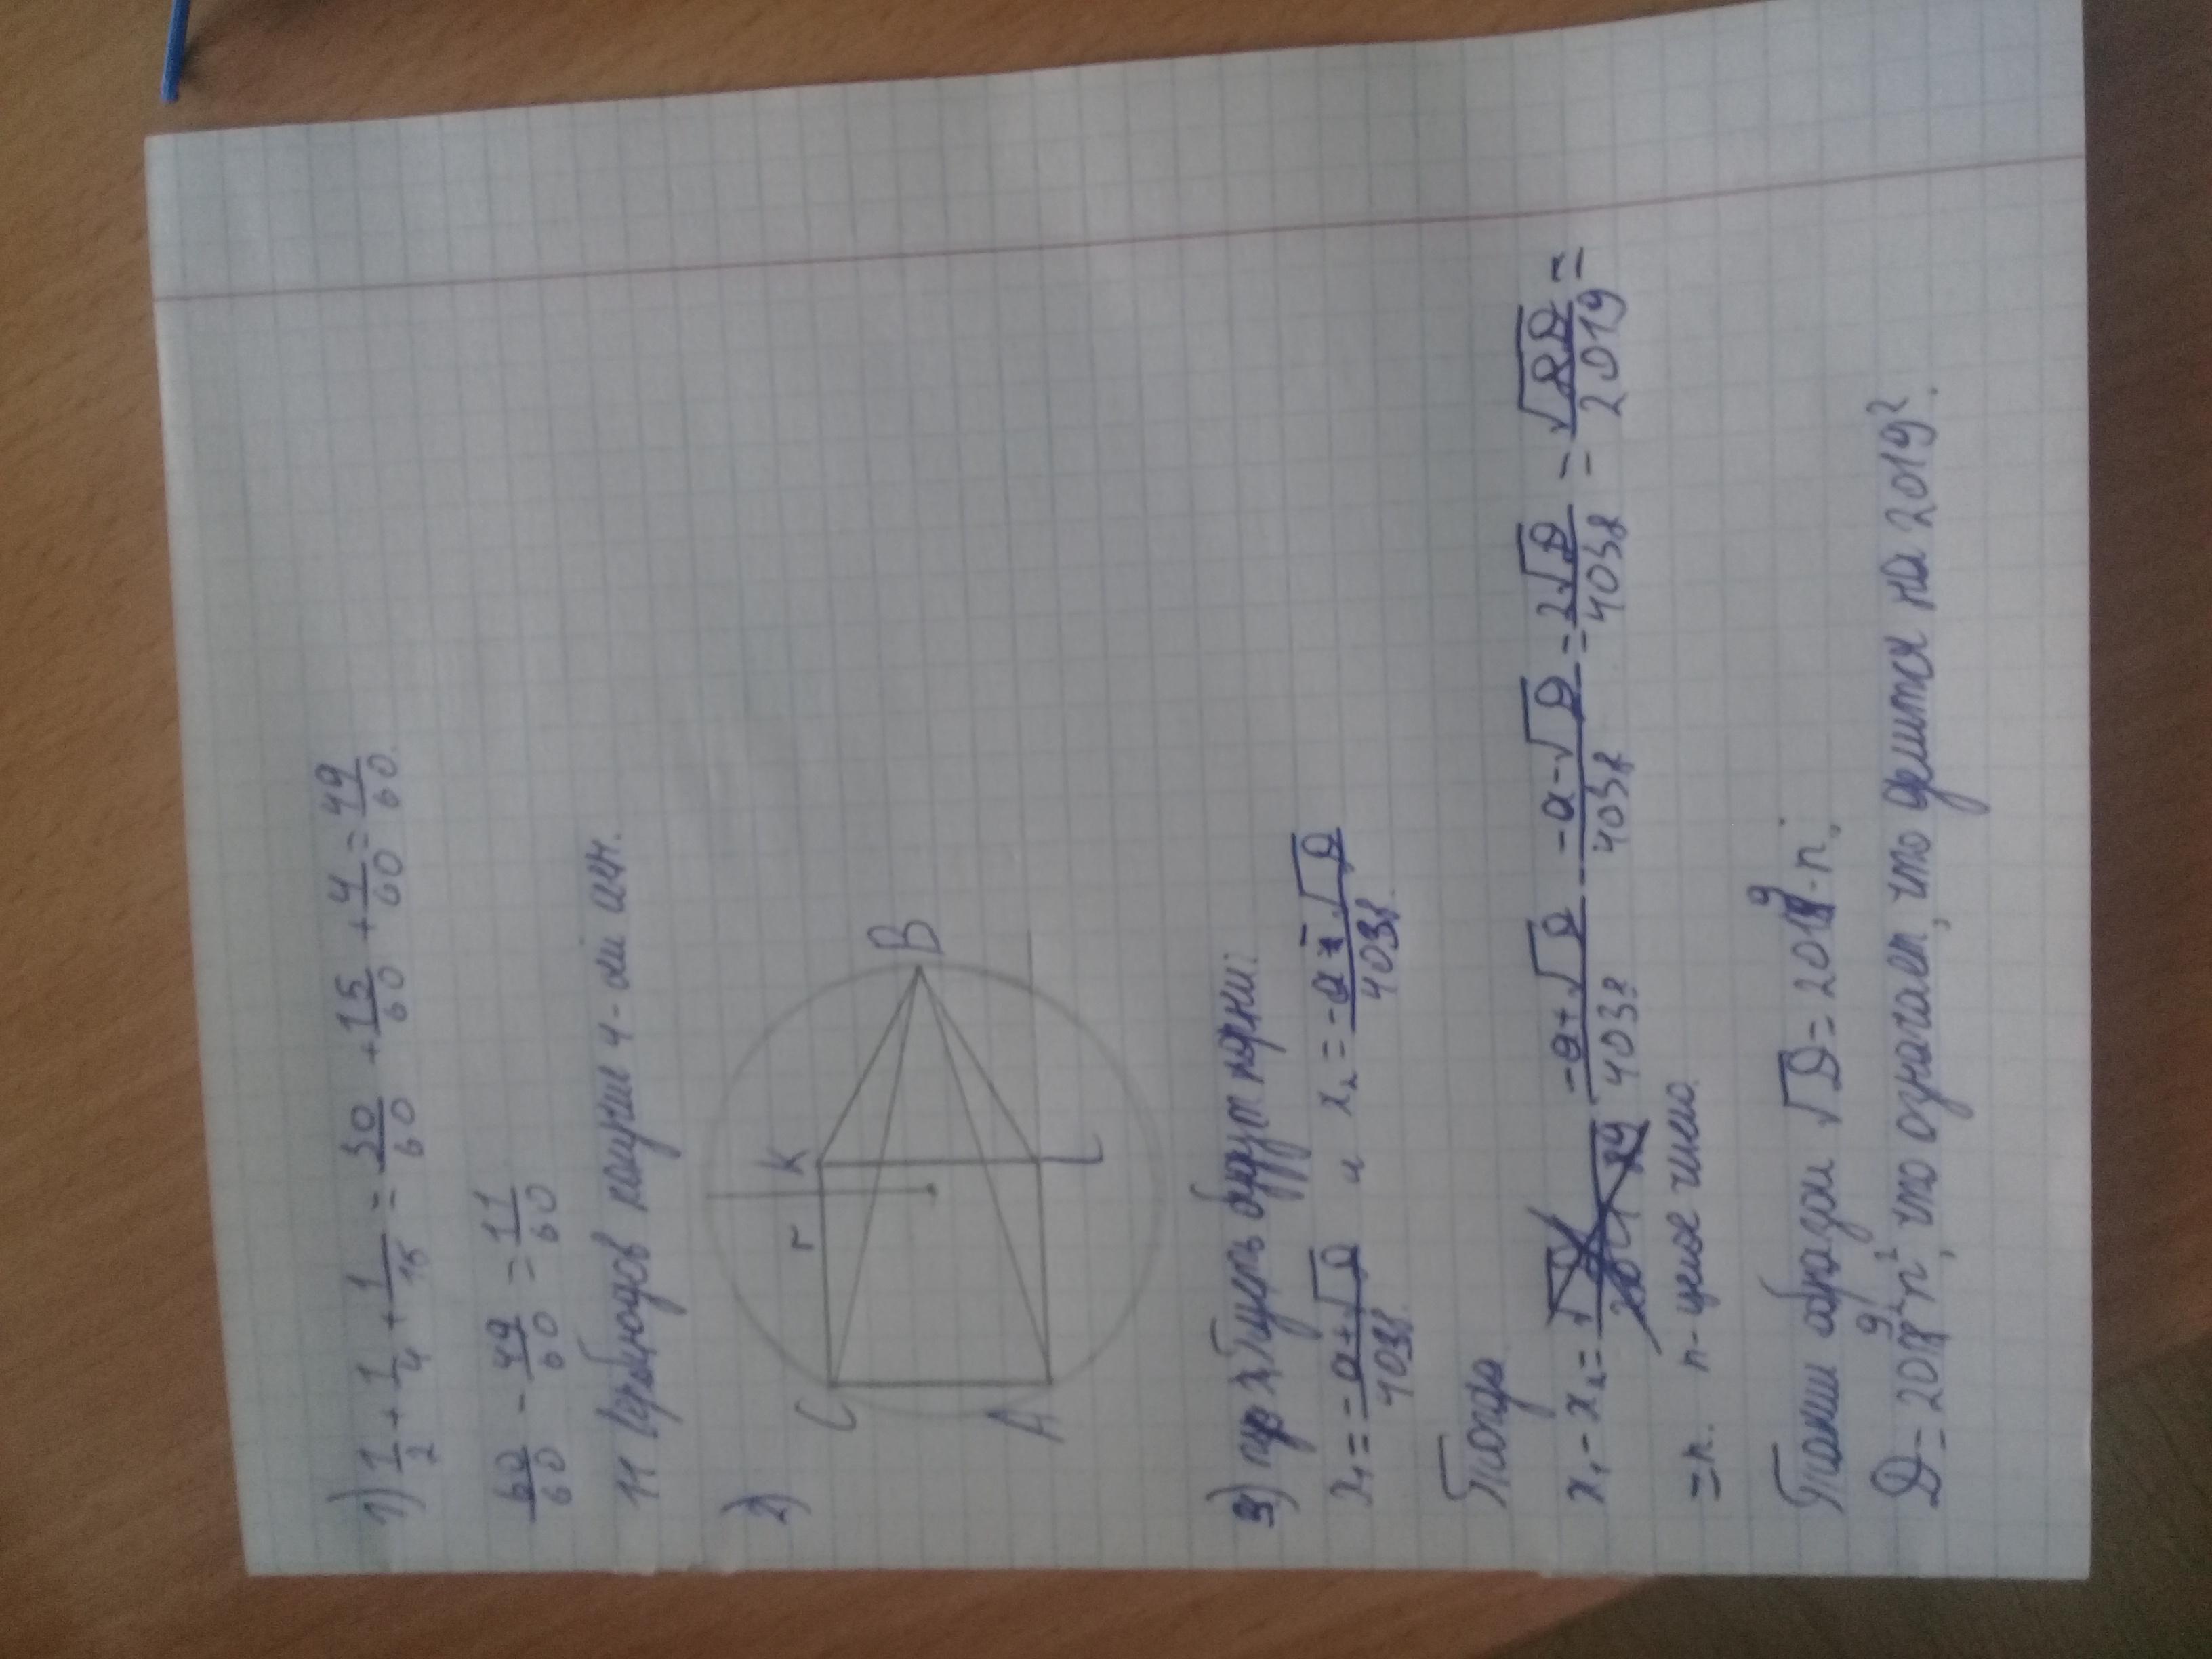 1) 1/2 + 1/4 + 1/15 = 30/60 + 15/60 + 4/60 = 49/60.
60/60 - 49/60 = 11/60
11 верблюдов получил 4-ый
2)
C r K B
A L
3) Пусть будут корни:
x₁ = = -a+√D/4038 и x₂ = -a-√D/4038.
Тогда
x₁ - x₂ = -a+√D/4038 - -a-√D/4038 = 2√D/4038 = √D/2019 =
= n. n - целое число.
Таким образом √D = 2019·n.
D = 2019²n², что означает, что делится на 2019².